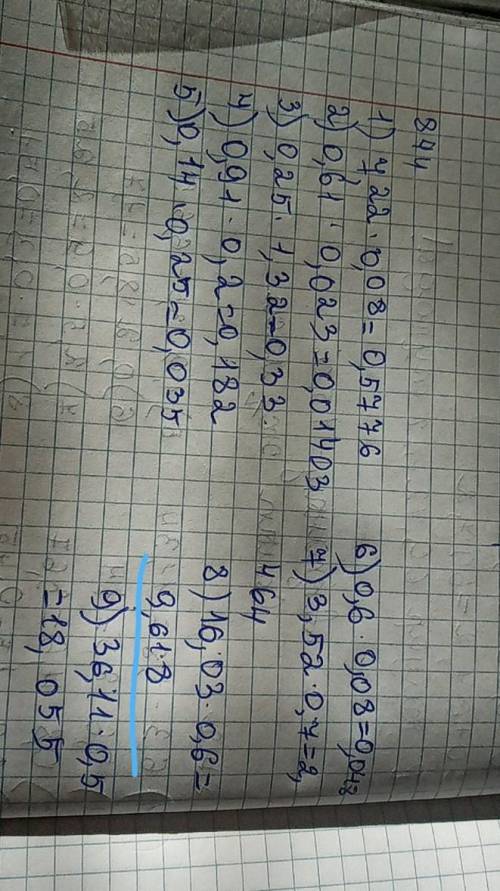 844
1) 7,22 · 0,08 = 0,5776
2) 0,61 · 0,023 = 0,01403
3) 0,25 · 1,32 = 0,33.
4) 0,91 · 0,2 = 0,182
5) 0,14 · 0,25 = 0,035
6) 0,6 · 0,08 = 0,048
7) 3,52 · 0,7 = 2,
464
8) 16,03 · 0,6 =
9,618
9) 36,11 · 0,5
= 18,055